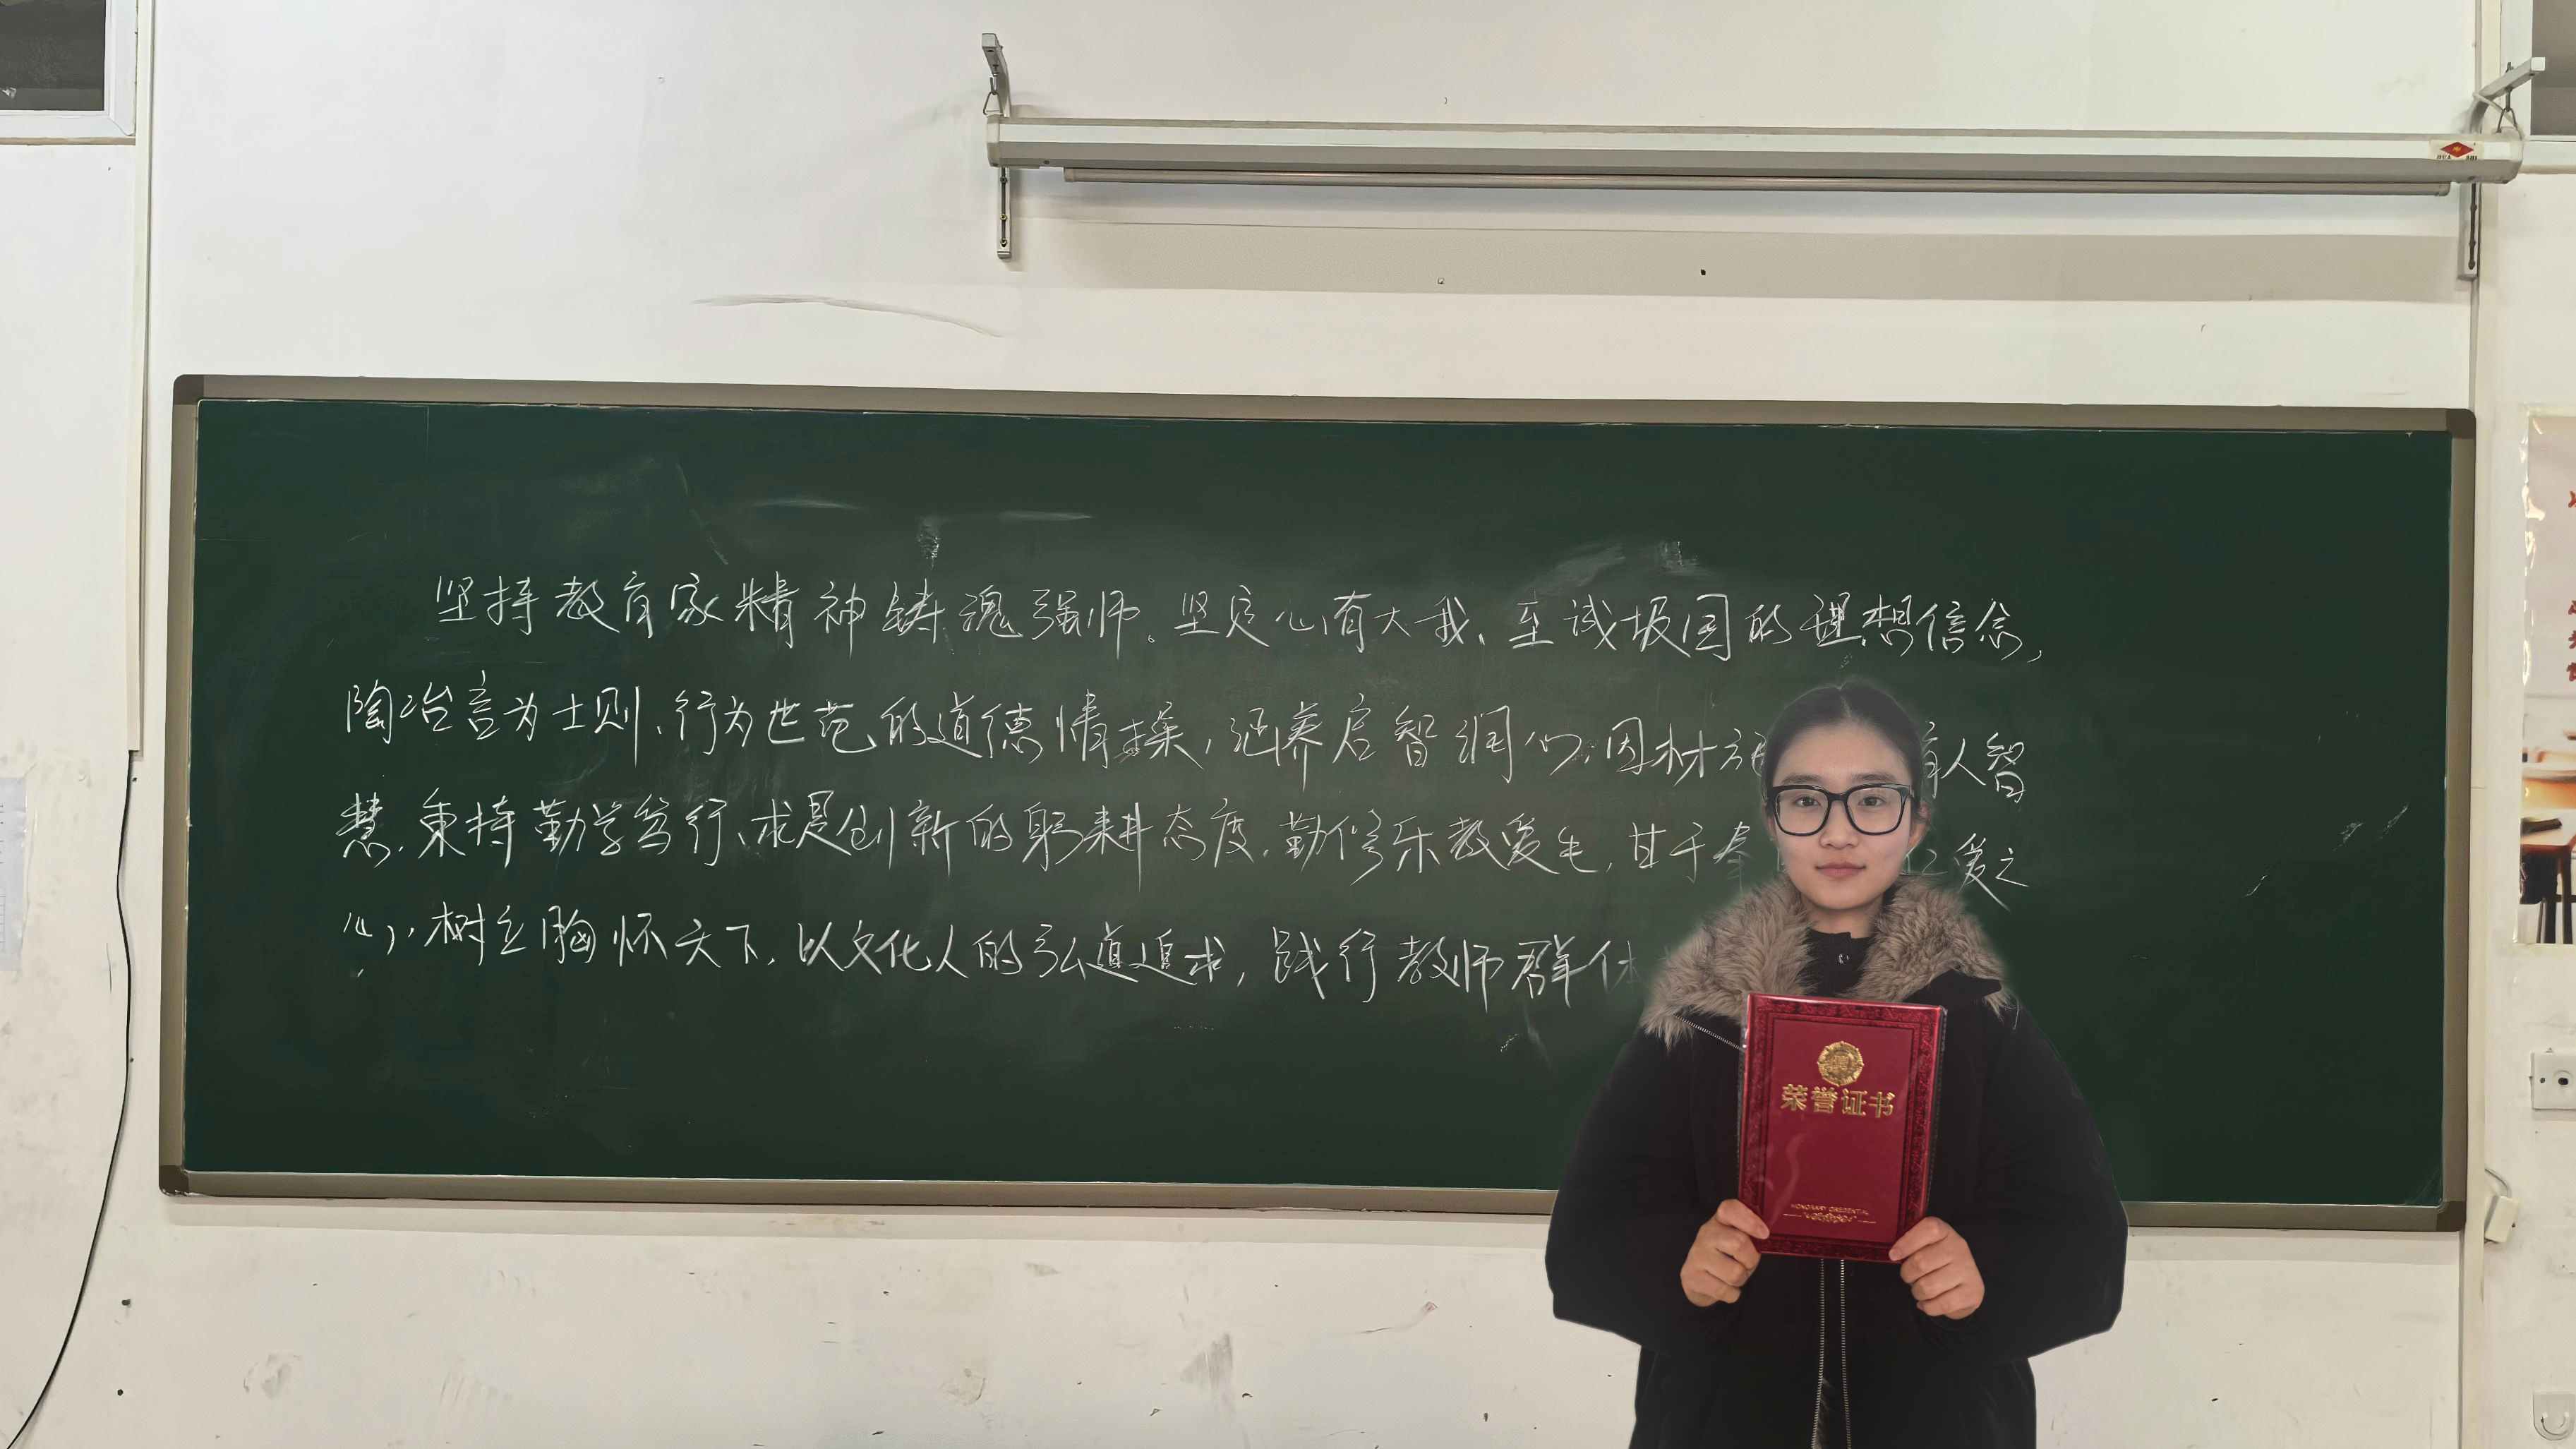 坚持教育家精神铸魂强师。坚定心有大我、至诚报国的理想信念,
陶冶言为士则、行为世范的道德情操,涵养启智润心、因材 育人智
慧,秉持勤学笃行、求是创新的躬耕态度,勤修乐教爱生、甘于奉 仁爱之
心,树立胸怀天下,以文化人的弘道追求,践行教师群体
荣誉证书
HONORARY CREDENTIAL